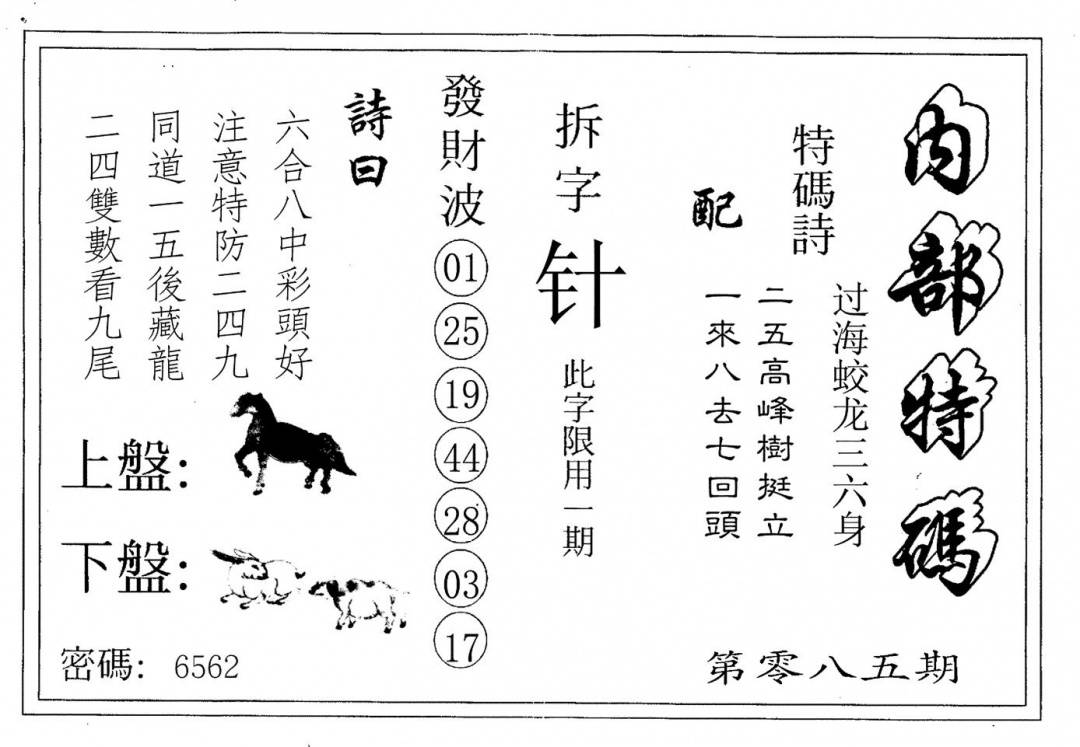 內部特碼
特碼詩
过海蛟龙三六身
配
二五高峰樹挺立
一來八去七回頭
第零八五期
拆字
针
此字限用一期
發財波
01
25
19
44
28
03
17
詩曰
六合八中彩頭好
注意特防二四九
同道一五後藏龍
二四雙數看九尾
上盤：
下盤：
密碼：6562